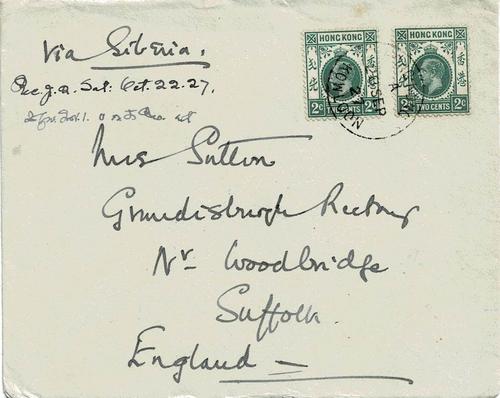 Via Siberia.
Rec. a. Sat: Oct. 22. 27.
Mrs Sutton
Grundisburgh Rectory
Nr Woodbridge
Suffolk.
England
HONG KONG
2C TWO CENTS 2C
HONG KONG
香港
TWO CENTS 2C
SEP
27
KOWLOON